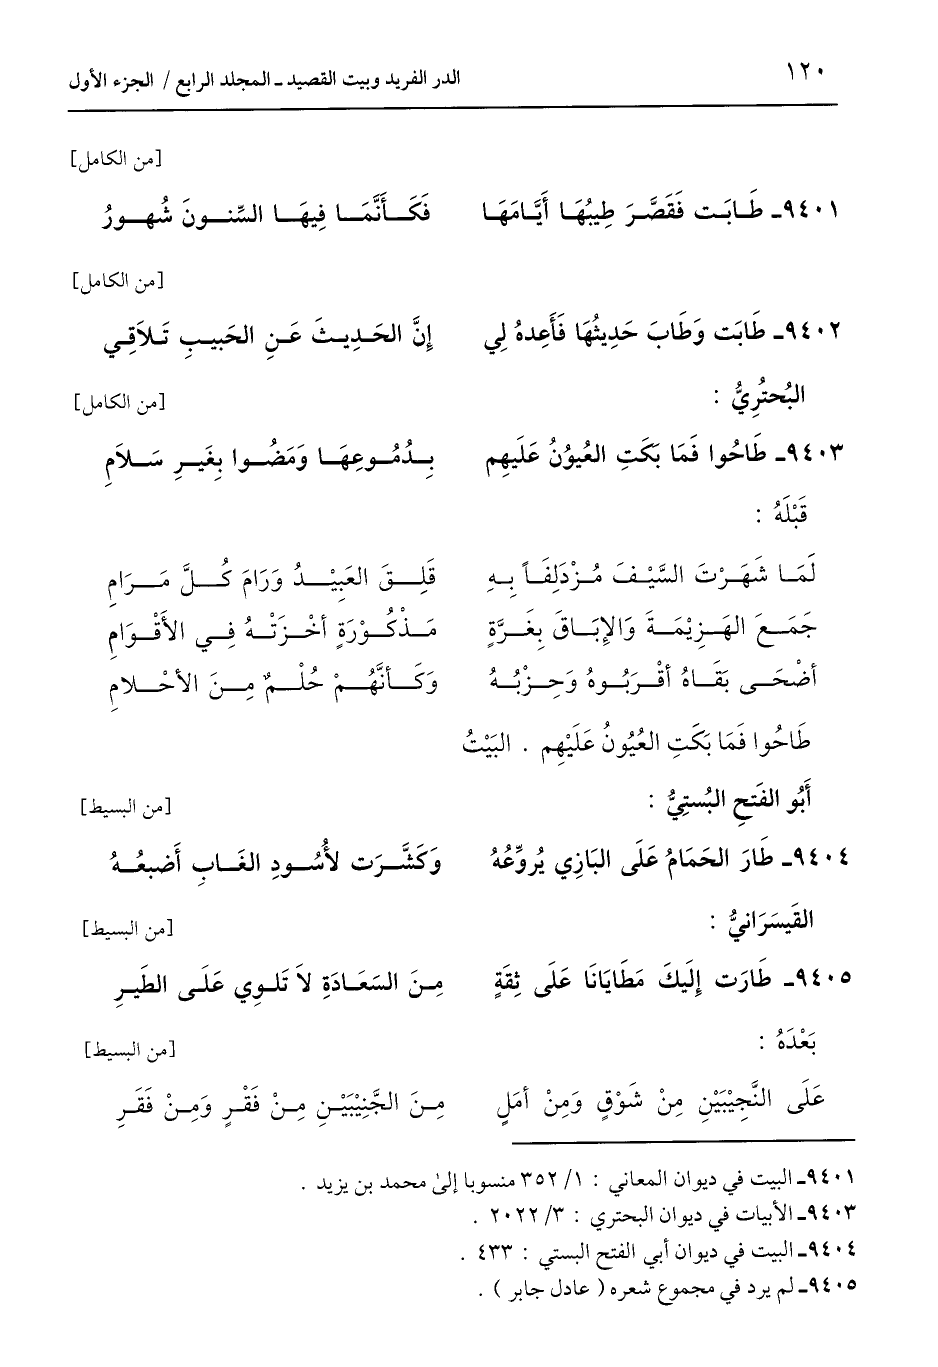 ١٢٠ الدر الفريد وبيت القصيد ـ المجلد الرابع / الجزء الأول
[من الكامل]
٩٤٠١ـ طَـابَـت فَقَصَّرَ طِيبُهَا أَيَّـامَهَـا فَكَــأَنَّمَــا فِيهَــا السِّنــونَ شُهــورُ
[من الكامل]
٩٤٠٢ـ طَابَت وَطَابَ حَدِيثُهَا فَأَعِدهُ لِي إِنَّ الحَـدِيـثَ عَـنِ الحَبِيـبِ تَـلَاقِـي
البُحتُرِيُّ : [من الكامل]
٩٤٠٣ـ طَاحُوا فَمَا بَكَتِ العُيوُنُ عَلَيهِم بِـدُمُـوعِهَـا وَمَضُـوا بِغَيـرِ سَـلاَمِ
قَبْلَهُ :
لَمَـا شَهَـرْتَ السَّيْـفَ مُـزْدَلِفَـاً بِـهِ قَلِــقَ العَبِيْــدُ وَرَامَ كُــلَّ مَــرَامِ
جَمَـعَ الهَـزِيْمَـةَ وَالإِبَـاقَ بِغَـرَّةٍ مَـذْكُـوْرَةٍ أَخْـزَتْـهُ فِـي الأَقْـوَامِ
أَضْحَـى بَقَـاهُ أَقْـرَبُـوهُ وَحِـزْبُـهُ وَكَــأَنَّهُــمْ حُلْــمٌ مِـنَ الأَحْــلامِ
طَاحُوا فَمَا بَكَتِ العُيُونُ عَلَيْهِم . البَيْتُ
أَبُو الفَتحِ البُستِيُّ : [من البسيط]
٩٤٠٤ـ طَارَ الحَمَامُ عَلَى البَازِي يُروِّعُهُ وَكَشَّـرَت لأُسُـودِ الغَـابِ أَضبعُـهُ
القَيسَرَانيُّ : [من البسيط]
٩٤٠٥ـ طَارَت إِلَيكَ مَطَايَانَا عَلَى ثِقَةٍ مِـنَ السَعَـادَةِ لاَ تَلـوِي عَلَـى الطَيـرِ
بَعْدَهُ : [من البسيط]
عَلَى النَّجِيْبَيْنِ مِنْ شَوْقٍ وَمِنْ أَمَلٍ مِـنَ الجَّنِيْبَيْـنِ مِـنْ فَقْـرٍ وَمِـنْ فَقَـرِ
٩٤٠١ـ البيت في ديوان المعاني : ١/ ٣٥٢ منسوبا إلىٰ محمد بن يزيد .
٩٤٠٣ـ الأبيات في ديوان البحتري : ٣/ ٢٠٢٢ .
٩٤٠٤ـ البيت في ديوان أبي الفتح البستي : ٤٣٣ .
٩٤٠٥ـ لم يرد في مجموع شعره ( عادل جابر ) .